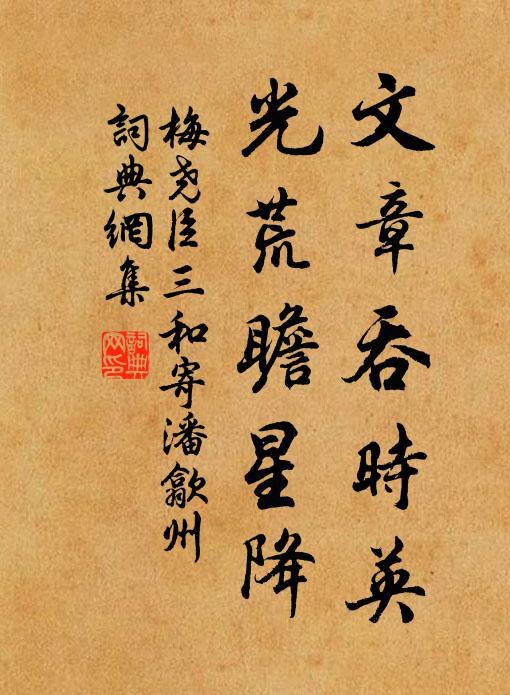 文章吞時英
光荒瞻星降
梅堯臣三和寄潘歙州
詞典網集
詞典網印